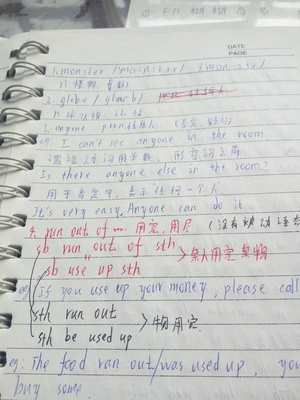 DATE
PAGE
1. monster /'mɒnstər/ /'mɒnstə/
n. 怪物,
2. globe /gləʊb/
n. 球状物; 地球
3. anyone pron. 任何人 (否定, 疑问)
eg: I can't see anyone in the room.
谓语动词用单数, 形容词
Is there anyone else in the room?
用于肯定句, 表示任何一个人
It's very easy. Anyone can do it.
4. run out of … 用完, 用尽 (没有被动语态
sb run out of sth
sb use up sth
某人用完某物
eg If you use up your money, please call
sth run out
sth be used up
物用完
eg: The food ran out/was used up, you
buy some.